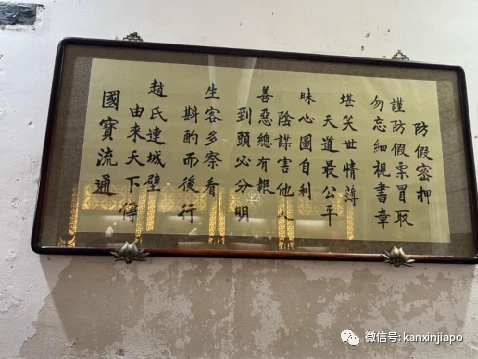 防假密押
謹防假票冒取
勿忘細視書章
堪笑世情薄
天道最公平
昧心圖自利
陰謀害他人
善惡總有報
到頭必分明
生客多察看
斟酌而後行
趙氏連城壁
由來天下傳
國寶流通
微信号: kanxinjiapo